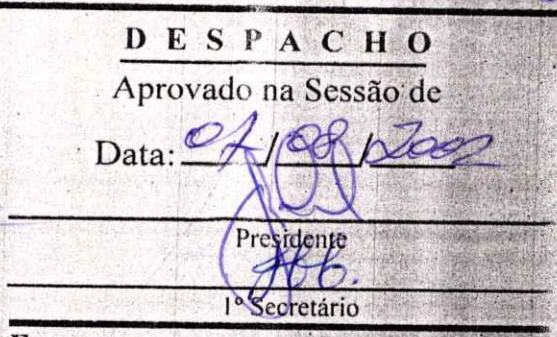 D E S P A C H O
Aprovado na Sessão de
Data: 07/08/2002
Presidente
1º Secretário